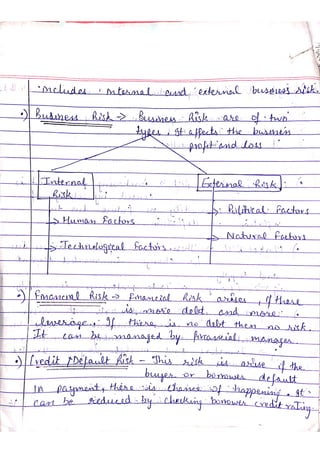 • Includes internal and external business risk.
•) Business Risk → Business Risk are of two
types, It affects the business
profit and loss
Internal Risk
External Risk
→ Political Factors
→ Human Factors
→ Natural Factors
→ Technological Factors
•) Financial Risk → Financial Risk arises, if there
is more debt and more
leverage. If there is no debt then no risk.
It can be managed by financial manager.
•) Credit / Default Risk - This risk is arise if the
buyer or borrower default
in payment, there is chance of happening. It
can be reduced by checking borrower credit rating.